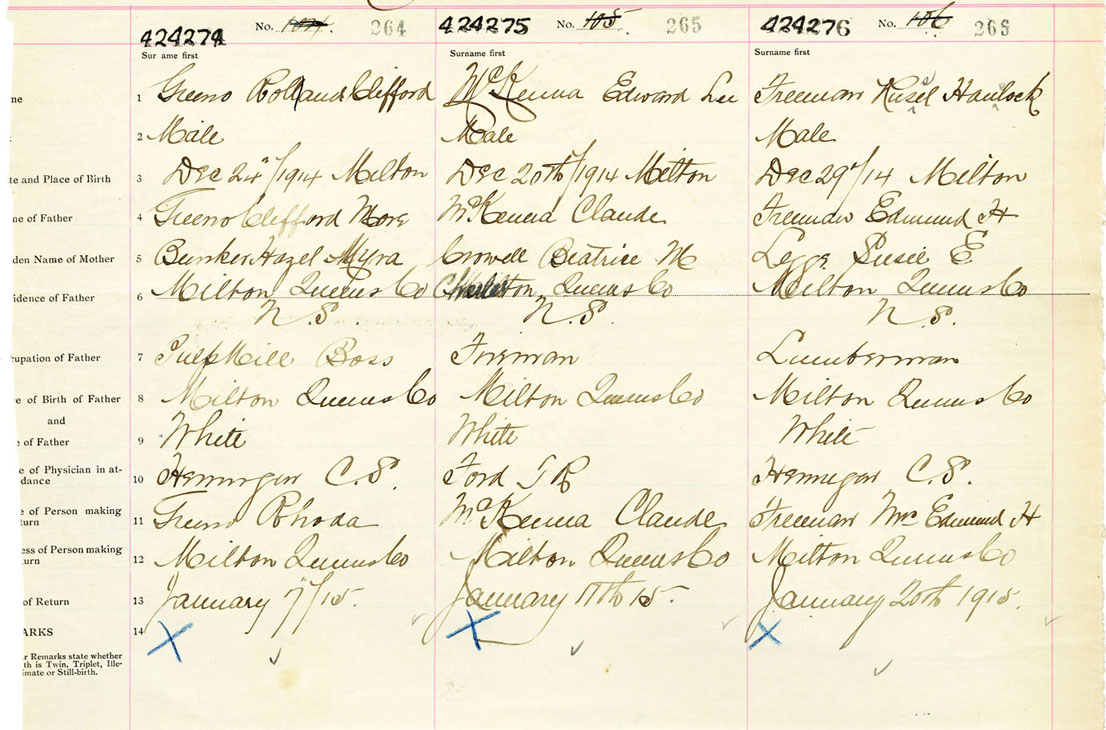 424274 No. 104 264 424275 No. 105 265 424276 No. 106 263
Surname first Surname first Surname first
ne 1 Greeno Rolland Clifford McKenna Edward Lee Freeman Rusel Havlock
2 Male Male Male
te and Place of Birth 3 Dec 24"/1914 Milton Dec 20th/1914 Milton Dec 29"/14 Milton
ne of Father 4 Greeno Clifford More McKenna Claude Freeman Edmund H
den Name of Mother 5 Bunker Hazel Myra Crowell Beatrice M Legge Susie E
idence of Father 6 Milton Queens Co Charleston, Queens Co Milton Queens Co
N.S. N.S. N.S.
cupation of Father 7 Pulp Mill Boss Fireman Lumberman
e of Birth of Father 8 Milton Queens Co Milton Queens Co Milton Queens Co
and
e of Father 9 White White White
e of Physician in at-
dance 10 Hennigar C.S. Ford T R Hennigar C.S.
e of Person making
turn 11 Greeno Rhoda McKenna Claude Freeman Mrs Edmund H
ess of Person making
urn 12 Milton Queens Co Milton Queens Co Milton Queens Co
of Return 13 January 7"/15. January 11th 15. January 20th 1915.
ARKS 14
r Remarks state whether
th is Twin, Triplet, Ille-
imate or Still-birth.